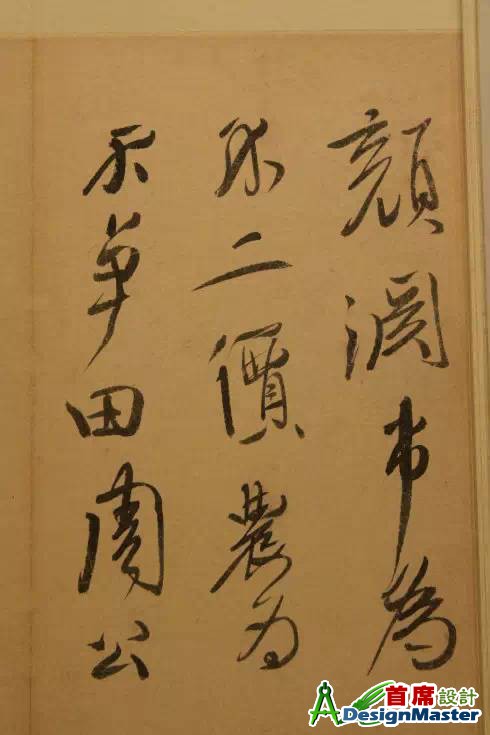 顔淵市為
不二價農為
不爭田周公
首席設計
DesignMaster